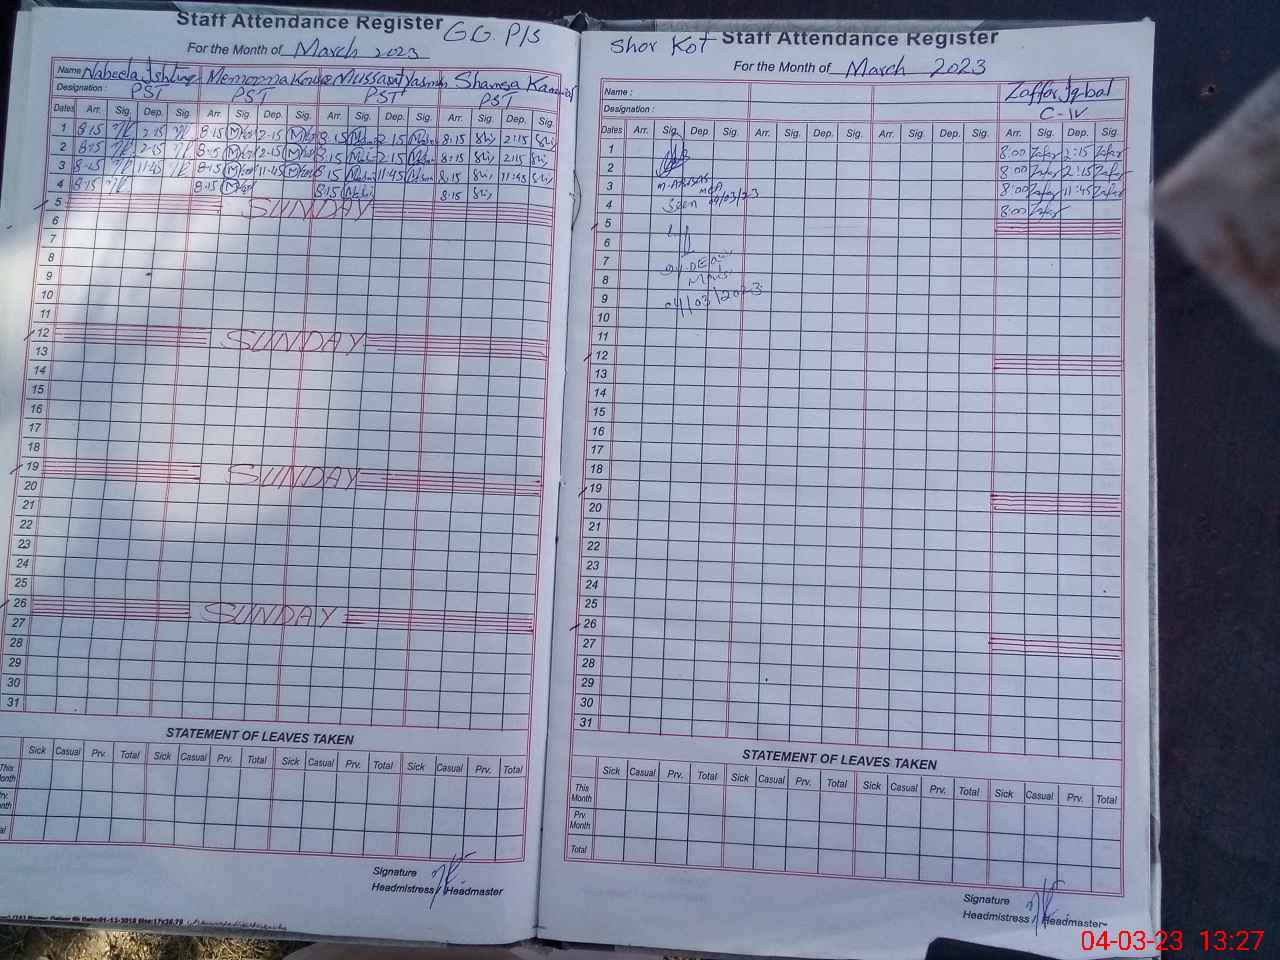 Staff Attendance Register GG. P/S
For the Month of March 2023
Name Nabeela Ishtiaq Memoona Kausar Mussarat Yasmin Shamsa Kanwal
Designation : PST PST PST PST
Dates Arr. Sig. Dep. Sig. Arr. Sig. Dep. Sig. Arr. Sig. Dep. Sig. Arr. Sig. Dep. Sig.
1 8:15 2:15 8:15 2:15 8:15 2:15 8:15 2:15
2 8:15 2:15 8:15 2:15 8:15 2:15 8:15 2:15
3 8:15 11:45 8:15 11:45 8:15 11:45 8:15 11:45
4 8:15 8:15 8:15 8:15
5 SUNDAY
6
7
8
9
10
11
12 SUNDAY
13
14
15
16
17
18
19 SUNDAY
20
21
22
23
24
25
26 SUNDAY
27
28
29
30
31
STATEMENT OF LEAVES TAKEN
Sick Casual Prv. Total Sick Casual Prv. Total Sick Casual Prv. Total Sick Casual Prv. Total
This Month
Prv. Month
Total
Signature
Headmistress / Headmaster
Shor Kot Staff Attendance Register
For the Month of March 2023
Name : Zaffar Iqbal
Designation : C-IV
Dates Arr. Sig. Dep. Sig. Arr. Sig. Dep. Sig. Arr. Sig. Dep. Sig. Arr. Sig. Dep. Sig.
1 8:00 Zafar 2:15 Zafar
2 8:00 Zafar 2:15 Zafar
3 8:00 Zafar 11:45 Zafar
4 Seen 04/03/23 8:00 Zafar
5
6
7
8
9 04/03/2023
10
11
12
13
14
15
16
17
18
19
20
21
22
23
24
25
26
27
28
29
30
31
STATEMENT OF LEAVES TAKEN
Sick Casual Prv. Total Sick Casual Prv. Total Sick Casual Prv. Total
This Month
Prv. Month
Total
Signature
Headmistress / Headmaster
04-03-23 13:27